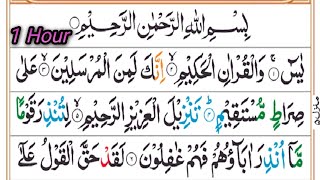 1 Hour
بِسْمِ اللهِ الرَّحْمٰنِ الرَّحِيْمِ
يٰسٓ ۚ وَالْقُرْاٰنِ الْحَكِيْمِ ۙ اِنَّكَ لَمِنَ الْمُرْسَلِيْنَ ۙ عَلٰى
صِرَاطٍ مُّسْتَقِيْمٍ ؕ تَنْزِيْلَ الْعَزِيْزِ الرَّحِيْمِ ۙ لِتُنْذِرَ قَوْمًا
مَّاۤ اُنْذِرَ اٰبَآؤُهُمْ فَهُمْ غٰفِلُوْنَ ۞ لَقَدْ حَقَّ الْقَوْلُ عَلٰٓى